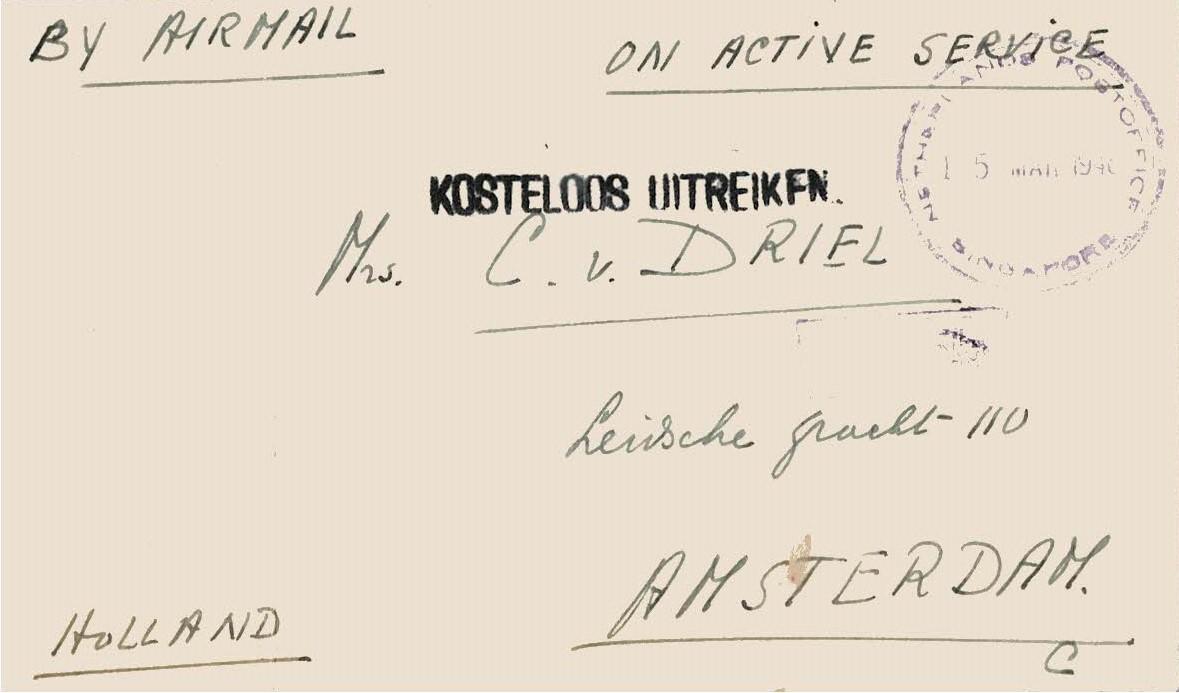 BY AIRMAIL
ON ACTIVE SERVICE
NETHERLANDS POSTOFFICE
15 MAR 1946
SINGAPORE
KOSTELOOS UITREIKEN.
Mrs. C. v. DRIEL
Leidsche gracht 110
AMSTERDAM.
C
HOLLAND